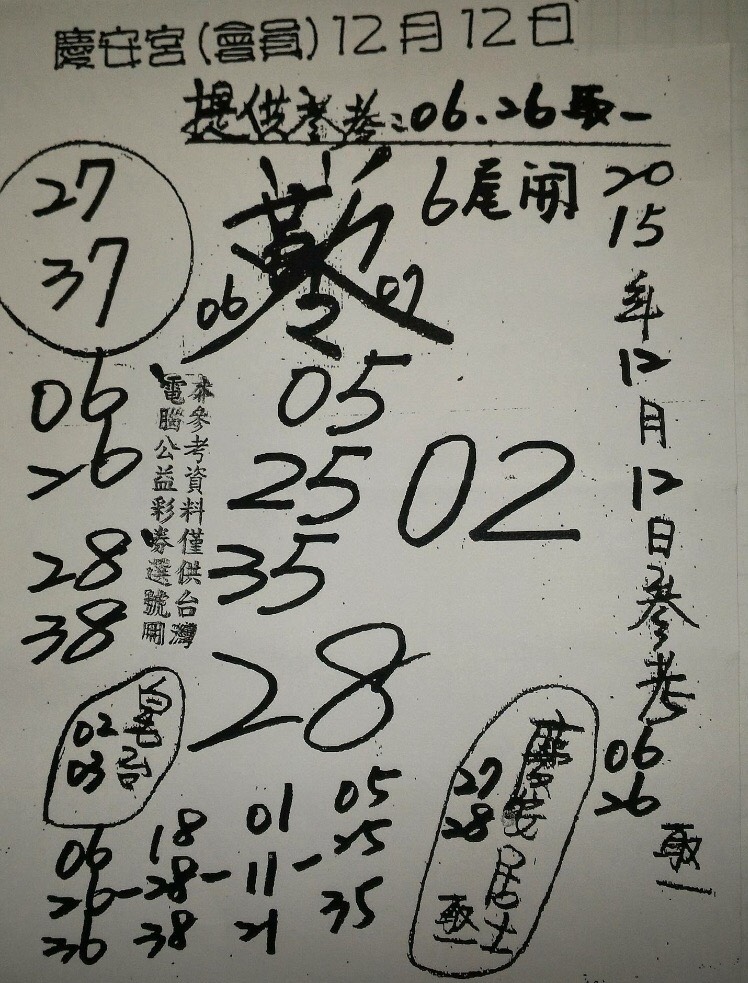 慶安宮(會員)12月12日
提供參考:06、26取一
27
37
6尾開
06
2
07
2015年12月12日參考
06
26
取一
06
26
28
38
本參考資料僅供台灣
電腦公益彩券選號用
05
25
35
02
28
02
03
慶安居士
27
28
取一
06 18 01 05
26-28-11-25
36 38 21 35